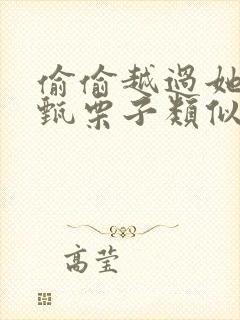 偷偷越過她
甄栗子類似
高莹